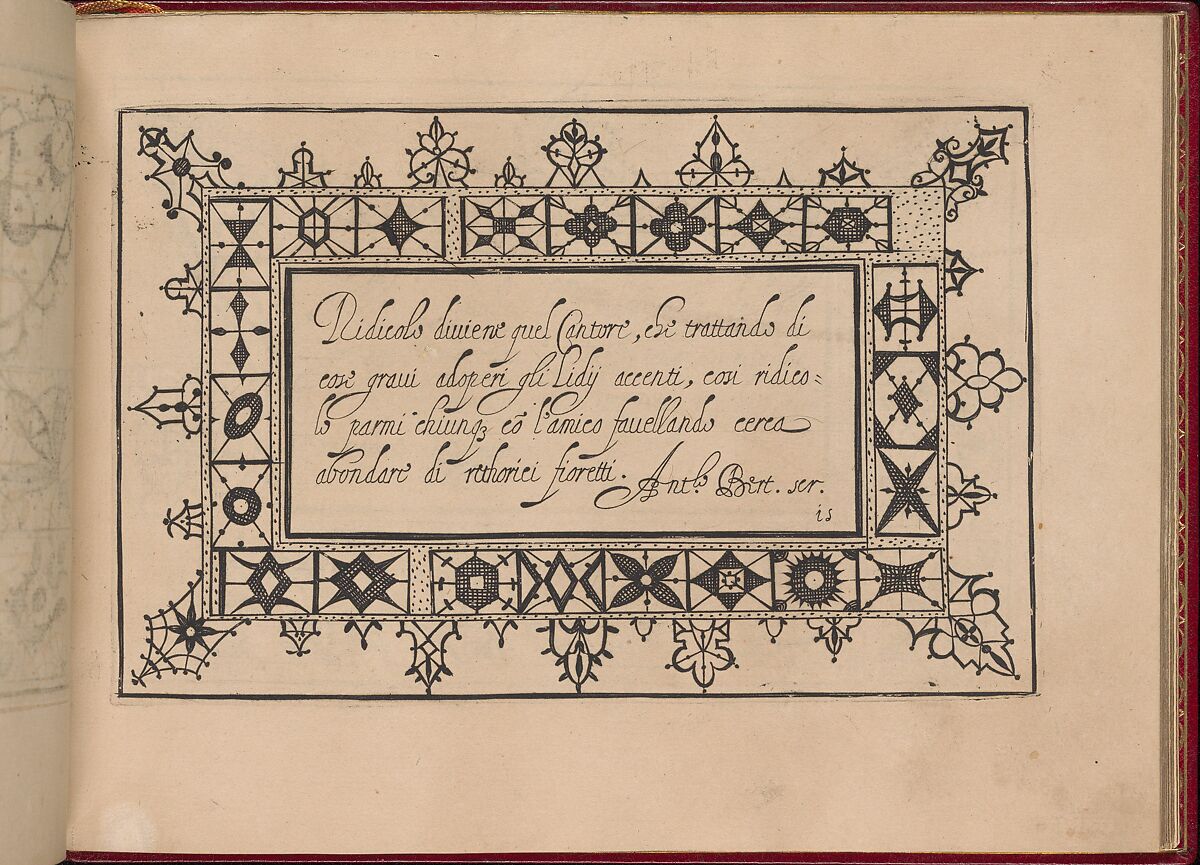 Ridicolo diuiene quel Cantore, che trattando di
cose graui adoperi gli Lidij accenti, cosi ridico=
lo parmi chiunqȝ cō l'amico fauellando cerca
abondare di rethorici fioretti.
Ant.º Bert. scr.
15